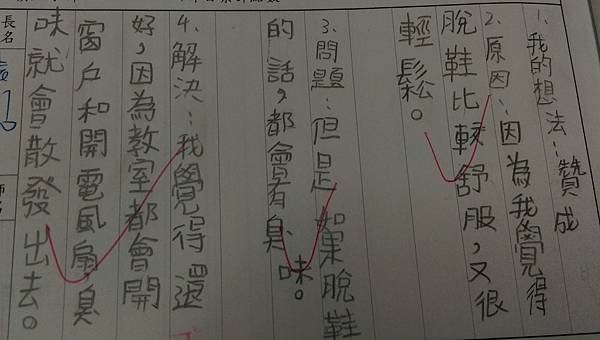 1、我的想法：贊成
2、原因：因為我覺得
脫鞋比較舒服，又很
輕鬆。
3、問題：但是如果脫鞋
的話，都會有臭味。
4、解決：我覺得還
好，因為教室都會開
窗戶和開電風扇臭
味就會散發出去。
長
名